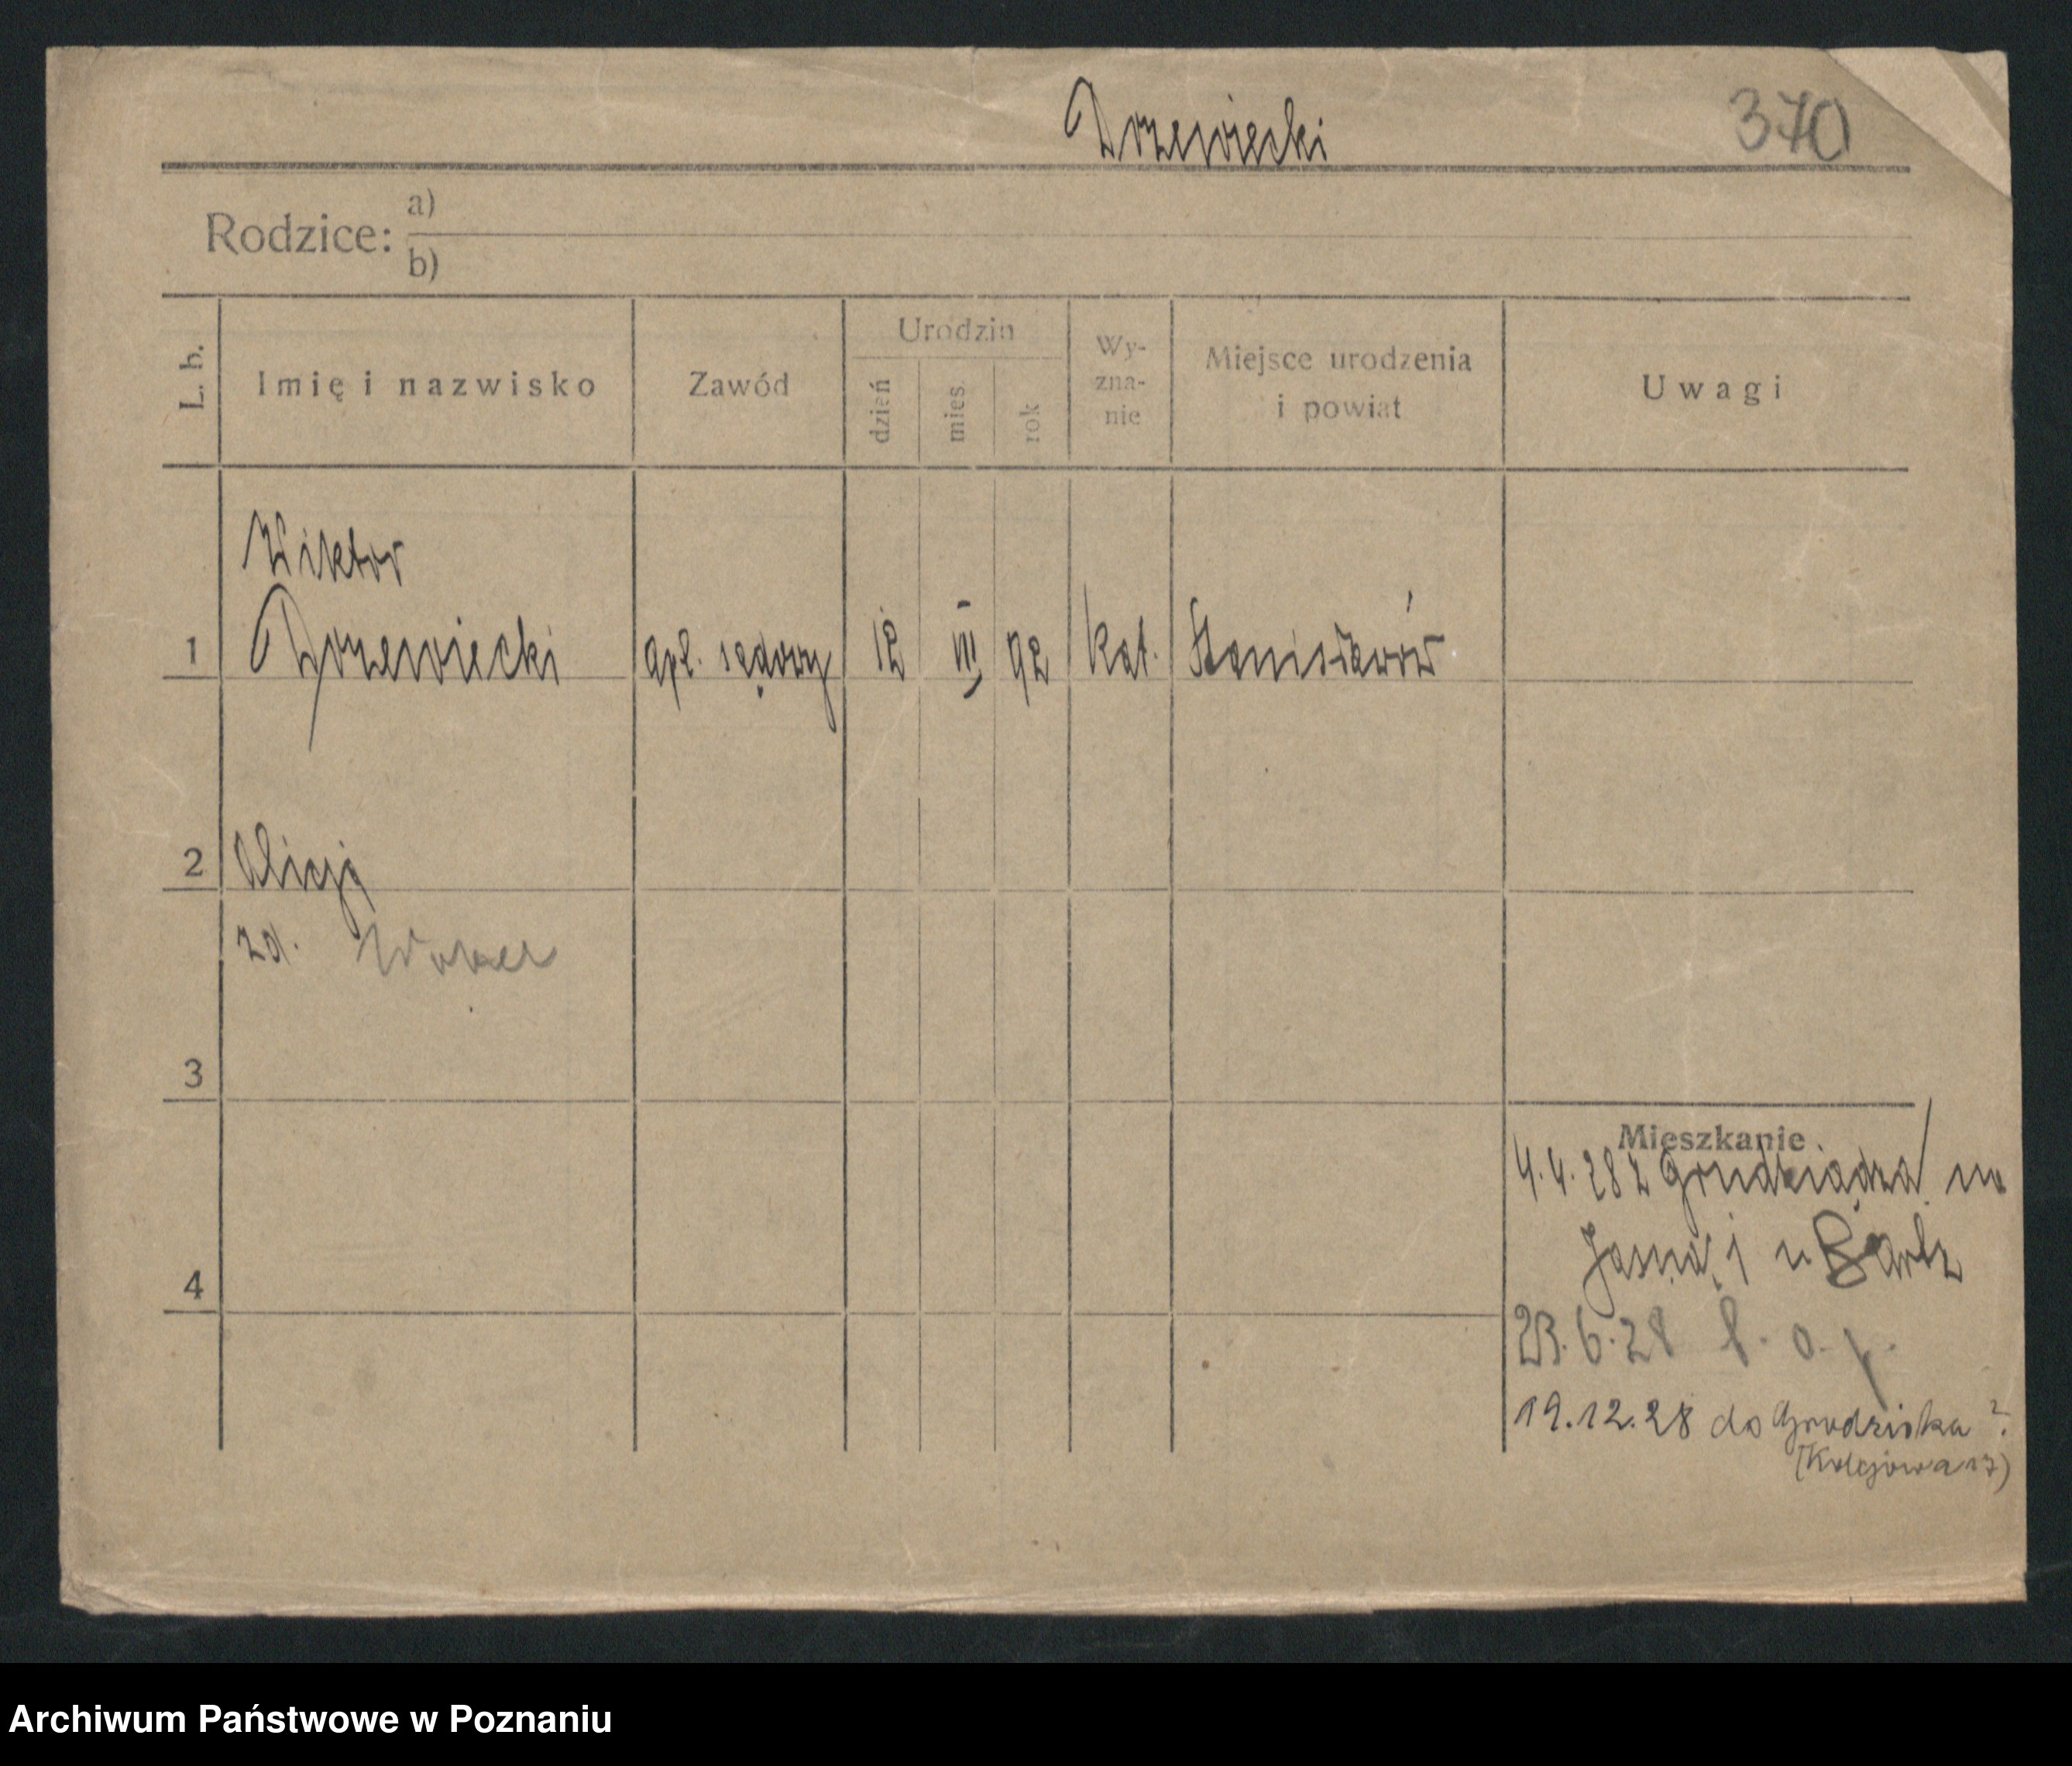 Drzewiecki 370
Rodzice: a)
b)
L. b.
Imię i nazwisko
Zawód
Urodzin
dzień
mies.
rok
Wy-
zna-
nie
Miejsce urodzenia
i powiat
Uwagi
Wiktor
1 Drzewiecki apl. sądowy 12 III 92 kat. Stanisławów
2 Alicja
zd.
3
4
Mieszkanie
4.4.28 z Grudziądza na
Jasna 1 u
23.6.28
19.12.28 do Grodziska ?
(Kolejowa 17)
Archiwum Państwowe w Poznaniu